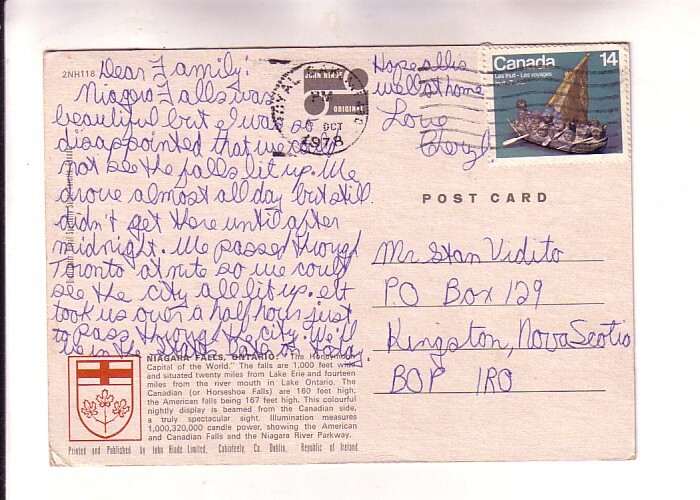 2NH118
Dear Family:
Niagra Falls was
beautiful but I was so
disappointed that we could
not see the falls lit up. We
drove almost all day but still
didn't get there until after
midnight. We passed through
Toronto at nite so we could
see the city all lit up. It
took us over a half hour just
to pass through the city. We'll
be in the States later today.
Hope all is
well at home
Love
Cheryl
JOHN HINDE
ORIGINAL
PM
OCT
1978
Canada 14
POST CARD
Mr Stan Vidito
P.O Box 129
Kingston, Nova Scotia
BOP 1RO
NIAGARA FALLS, ONTARIO. "The Honeymoon
Capital of the World." The falls are 1,000 feet wide
and situated twenty miles from Lake Erie and fourteen
miles from the river mouth in Lake Ontario. The
Canadian (or Horseshoe Falls) are 160 feet high,
the American falls being 167 feet high. This colourful
nightly display is beamed from the Canadian side,
a truly spectacular sight. Illumination measures
1,000,320,000 candle power, showing the American
and Canadian Falls and the Niagara River Parkway.
Printed and Published by John Hinde Limited, Cabinteely, Co. Dublin, Republic of Ireland